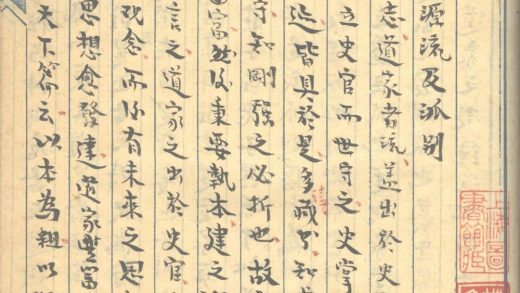 源流及派别
志道家者流盖出於史
立史官而世守之史掌
皆具於是多藏
守知剛強之必折也故
富然後秉要執本建之
言之道家之出於史官
观念而後有未来之思
思想愈發達道家豐富
天下篇云以本為粗以
上海圖
書館